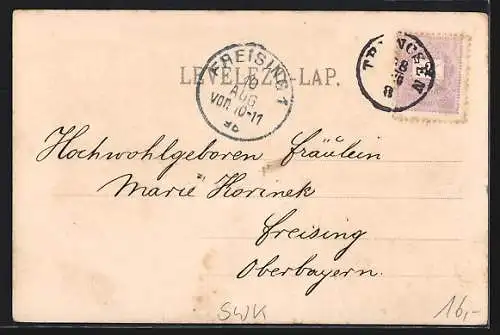 LEVELEZŐ-LAP.
FREISING 1
10
AUG
VOR. 10-11
TRENCSÉN
Hochwohlgeboren Fräulein
Marie Korinek
Freising
Oberbayern.
SWK
16,-